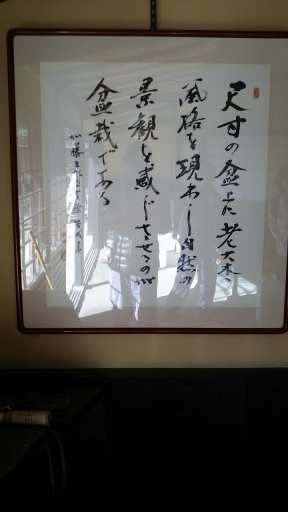 尺寸の盆上に老大木の
風格を現わし自然の
景観を感じさせるのが
盆栽である
加藤三郎